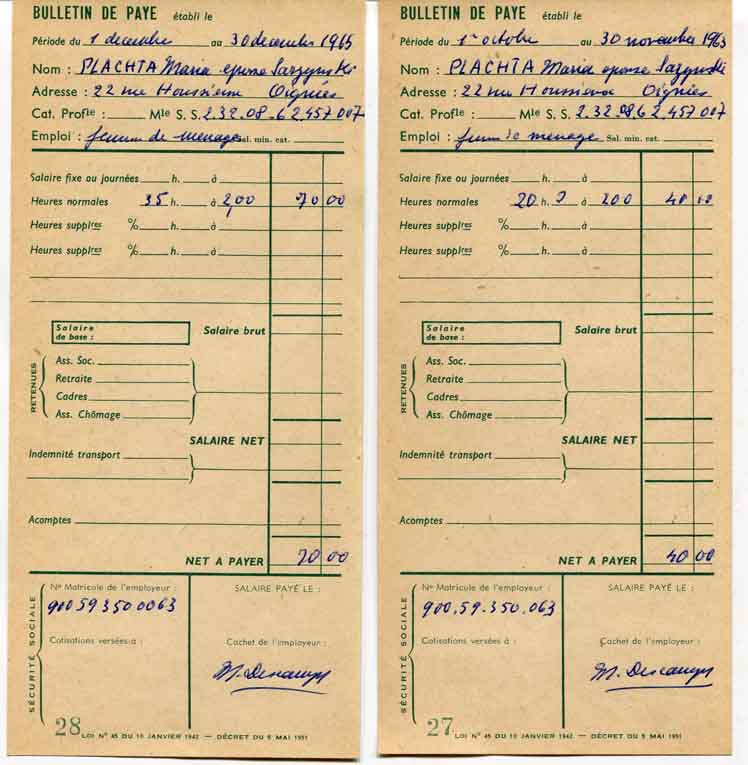 BULLETIN DE PAYE établi le
Période du 1 decembre au 30 decembre 1965
Nom : PLACHTA Maria epouse
Adresse : 22 rue Oignies
Cat. Profle : Mle S. S. 2.32.08.62.457 007
Emploi : femme de menage Sal. min. cat.
Salaire fixe ou journées h. à
Heures normales 35 h. à 2,00 70 00
Heures supplres % h. à
Heures supplres % h. à
Salaire de base : Salaire brut
RETENUES
Ass. Soc.
Retraite
Cadres
Ass. Chômage
SALAIRE NET
Indemnité transport
Acomptes
NET A PAYER 70 00
SÉCURITÉ SOCIALE
No Matricule de l'employeur : SALAIRE PAYÉ LE :
900 59 350 0063
Cotisations versées à : Cachet de l'employeur :
M. Descamps
28 LOI No 45 DU 10 JANVIER 1942 — DÉCRET DU 9 MAI 1951
BULLETIN DE PAYE établi le
Période du 1er octobre au 30 novembre 1963
Nom : PLACHTA Maria epouse
Adresse : 22 rue Oignies
Cat. Profle : Mle S. S. 2.32.08.62.457 007
Emploi : femme de menage Sal. min. cat.
Salaire fixe ou journées h. à
Heures normales 20 h. à 200 40 00
Heures supplres % h. à
Heures supplres % h. à
Salaire de base : Salaire brut
RETENUES
Ass. Soc.
Retraite
Cadres
Ass. Chômage
SALAIRE NET
Indemnité transport
Acomptes
NET A PAYER 40 00
SÉCURITÉ SOCIALE
No Matricule de l'employeur : SALAIRE PAYÉ LE :
900.59.350.063
Cotisations versées à : Cachet de l'employeur :
M. Descamps
27 LOI No 45 DU 10 JANVIER 1942 — DÉCRET DU 9 MAI 1951